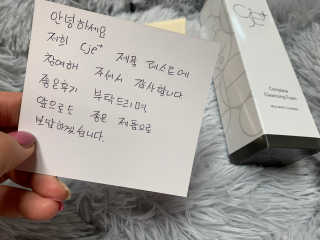 안녕하세요
저희 Cje+ 제품 테스트에
참여해 주셔서 감사합니다
좋은후기 부탁드리며,
앞으로도 좋은 제품으로
보답하겠습니다.
Cje+
Complete
Cleansing Foam